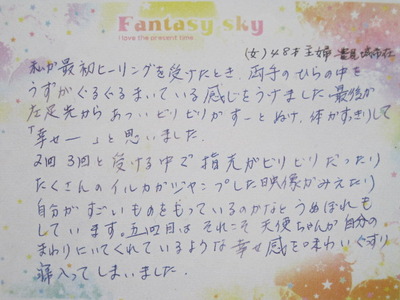 Fantasy sky
I love the present time.
(女) 48才 主婦 豊見城市在
私が最初ヒーリングを受けたとき、両手のひらの中を
うずがぐるぐるまいている感じをうけました。最後が
左足先からあついビリビリがすーとぬけ、体がすっきりして
「幸せー」と思いました。
2回 3回と受ける中で指先がビリビリだったり
たくさんのイルカがジャンプした映像がみえたり
自分がすごいものをもっているのかなとうぬぼれも
しています。五四回目はそれこそ天使ちゃんが自分の
まわりにいてくれているような幸せ感を味わいぐっすり
寝入ってしまいました。